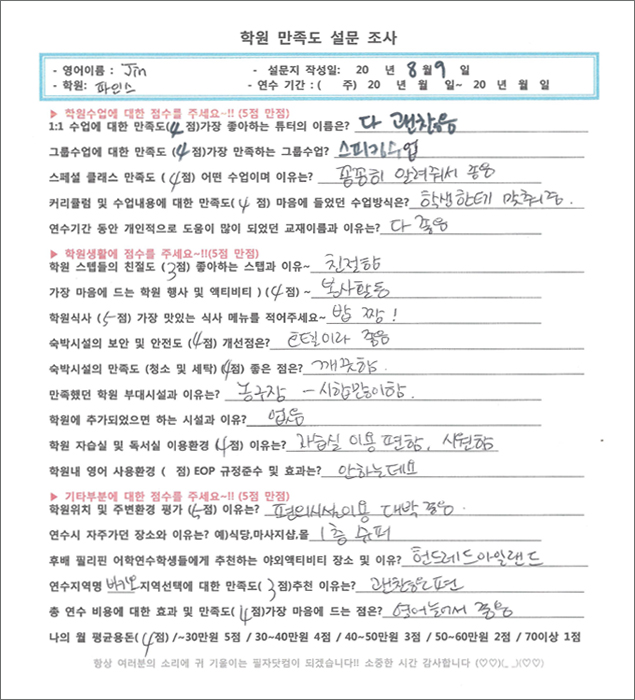 학원 만족도 설문 조사
- 영어이름 : Jin - 설문지 작성일: 20 년 8월 9일
- 학원: 파인스 - 연수 기간 : ( 주) 20 년 월 일~ 20 년 월 일
▶ 학원수업에 대한 점수를 주세요~!! (5점 만점)
1:1 수업에 대한 만족도(4점)가장 좋아하는 튜터의 이름은? 다 괜찮음
그룹수업에 대한 만족도(4점)가장 만족하는 그룹수업? 스피킹수업
스페셜 클래스 만족도 (4점) 어떤 수업이며 이유는? 꼼꼼히 알려줘서 좋음
커리큘럼 및 수업내용에 대한 만족도(4 점) 마음에 들었던 수업방식은? 학생한테 맞춰줌.
연수기간 동안 개인적으로 도움이 많이 되었던 교재이름과 이유는? 다 좋음
▶ 학원생활에 점수를 주세요~!!(5점 만점)
학원 스텝들의 친절도 (3점) 좋아하는 스탭과 이유~ 친절함
가장 마음에 드는 학원 행사 및 액티비티 ) (4점) ~ 봉사활동
학원식사 (5점) 가장 맛있는 식사 메뉴를 적어주세요~ 밥 짱!
숙박시설의 보안 및 안전도 (4점) 개선점은? 호텔이라 좋음
숙박시설의 만족도 (청소 및 세탁) (4점) 좋은 점은? 깨끗함.
만족했던 학원 부대시설과 이유는? 농구장 - 시합많이함.
학원에 추가되었으면 하는 시설과 이유? 없음
학원 자습실 및 독서실 이용환경 (4점) 이유는? 자습실 이용 편함, 시원함
학원내 영어 사용환경 ( 점) EOP 규정준수 및 효과는? 안하는데요
▶ 기타부분에 대한 점수를 주세요~!! (5점 만점)
학원위치 및 주변환경 평가 (5점) 이유는? 편의시설이용 대박 좋음.
연수시 자주가던 장소와 이유는? 예)식당,마사지샵,몰 1층 슈퍼
후배 필리핀 어학연수학생들에게 추천하는 야외액티비티 장소 및 이유? 헌드레드아일랜드
연수지역명 바기오 지역선택에 대한 만족도(3점)추천 이유는? 괜찮은편
총 연수 비용에 대한 효과 및 만족도(4점)가장 마음에 드는 점은? 영어늘어서 좋음
나의 월 평균용돈(4점) /~30만원 5점 / 30~40만원 4점 / 40~50만원 3점 / 50~60만원 2점 / 70이상 1점
항상 여러분의 소리에 귀 기울이는 필자닷컴이 되겠습니다!! 소중한 시간 감사합니다 (♡♡)(_ _)(♡♡)